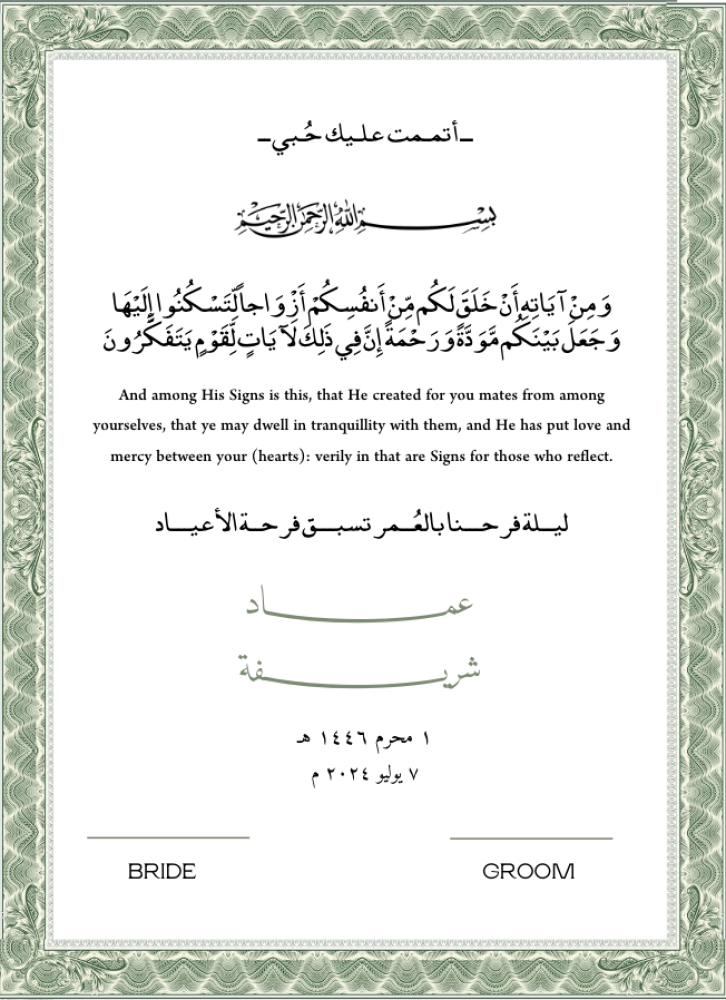 ـ أتمـمت علـيك حُـبي ـ
بسم الله الرحمن الرحيم
وَمِنْ آيَاتِهِ أَنْ خَلَقَ لَكُم مِّنْ أَنفُسِكُمْ أَزْوَاجاً لِّتَسْكُنُوا إِلَيْهَا
وَجَعَلَ بَيْنَكُم مَّوَدَّةً وَرَحْمَةً إِنَّ فِي ذَلِكَ لَآيَاتٍ لِّقَوْمٍ يَتَفَكَّرُونَ
And among His Signs is this, that He created for you mates from among
yourselves, that ye may dwell in tranquillity with them, and He has put love and
mercy between your (hearts): verily in that are Signs for those who reflect.
ليـلة فرحـنا بالعُـمر تسبـق فرحـة الأعيـاد
عمـاد
شريـفة
١ محرم ١٤٤٦ هـ
٧ يوليو ٢٠٢٤ م
BRIDE GROOM